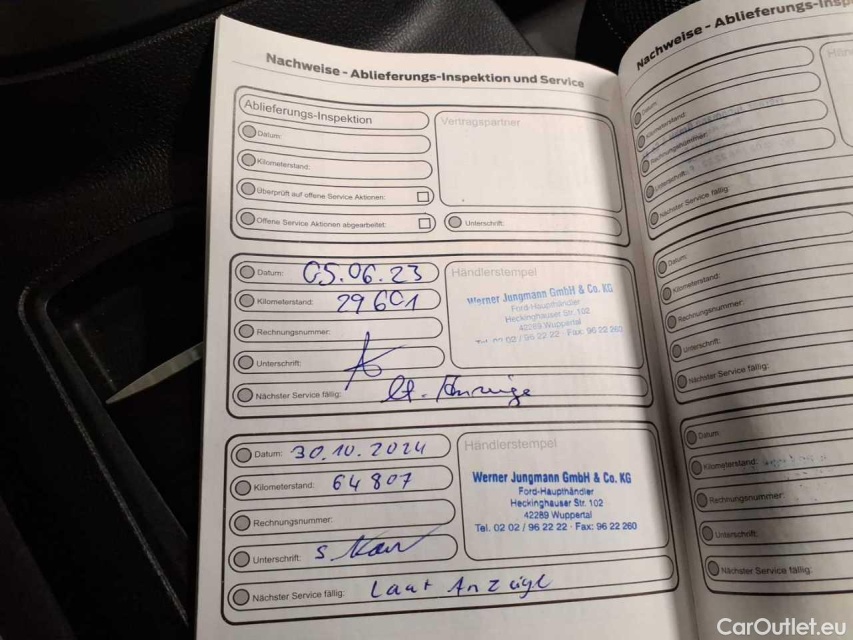 Nachweise - Ablieferungs-Inspektion und Service
Ablieferungs-Inspektion
Datum:
Kilometerstand:
Überprüft auf offene Service Aktionen:
Offene Service Aktionen abgearbeitet:
Vertragspartner
Unterschrift:
Datum: 05.06.23
Kilometerstand: 29601
Rechnungsnummer:
Unterschrift:
Nächster Service fällig: lt. Anzeige
Händlerstempel
Werner Jungmann GmbH & Co. KG
Ford-Haupthändler
Heckinghauser Str. 102
42289 Wuppertal
Tel. 02 02 / 96 22 22 · Fax: 96 22 260
Datum: 30.10.2024
Kilometerstand: 64807
Rechnungsnummer:
Unterschrift:
Nächster Service fällig: Laut Anzeige
Händlerstempel
Werner Jungmann GmbH & Co. KG
Ford-Haupthändler
Heckinghauser Str. 102
42289 Wuppertal
Tel. 02 02 / 96 22 22 · Fax: 96 22 260
Nachweise - Ablieferungs-Insp
Datum:
Kilometerstand:
Rechnungsnummer:
Unterschrift:
Nächster Service fällig:
Datum:
Kilometerstand:
Rechnungsnummer:
Unterschrift:
Nächster Service fällig:
Datum:
Kilometerstand:
Rechnungsnummer:
Unterschrift:
Nächster Service fällig:
CarOutlet.eu